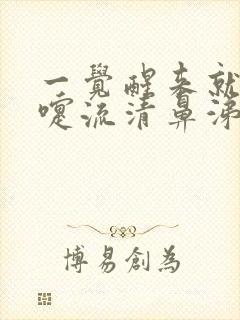 一覺醒來就
嚏流清鼻涕
博易創為